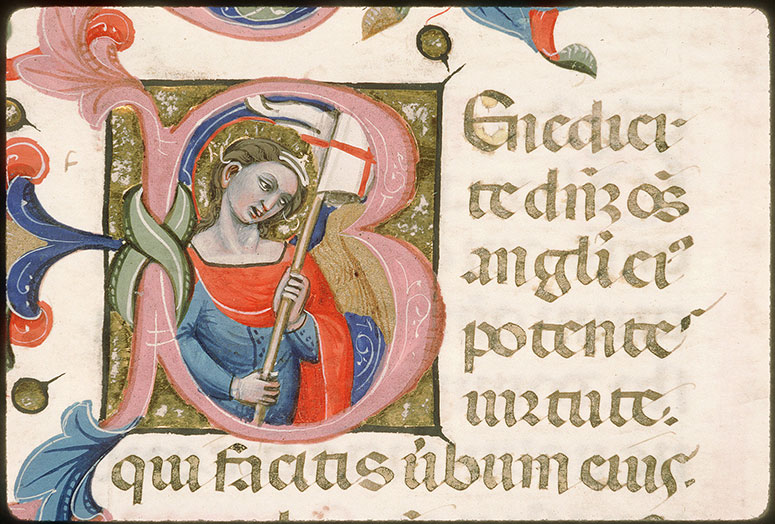 BEnedici-
te dn̄ꝫ os̄
angl̄i eiꝰ
potenteˢ
uirtute.
qui facitis ūbum eius.